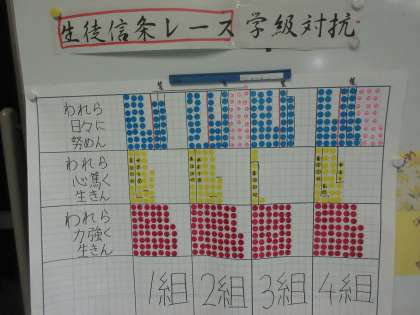 生徒信条レース 学級対抗
われら
日々に
努めん
われら
心篤く
生きん
われら
力強く
生きん
1組 2組 3組 4組